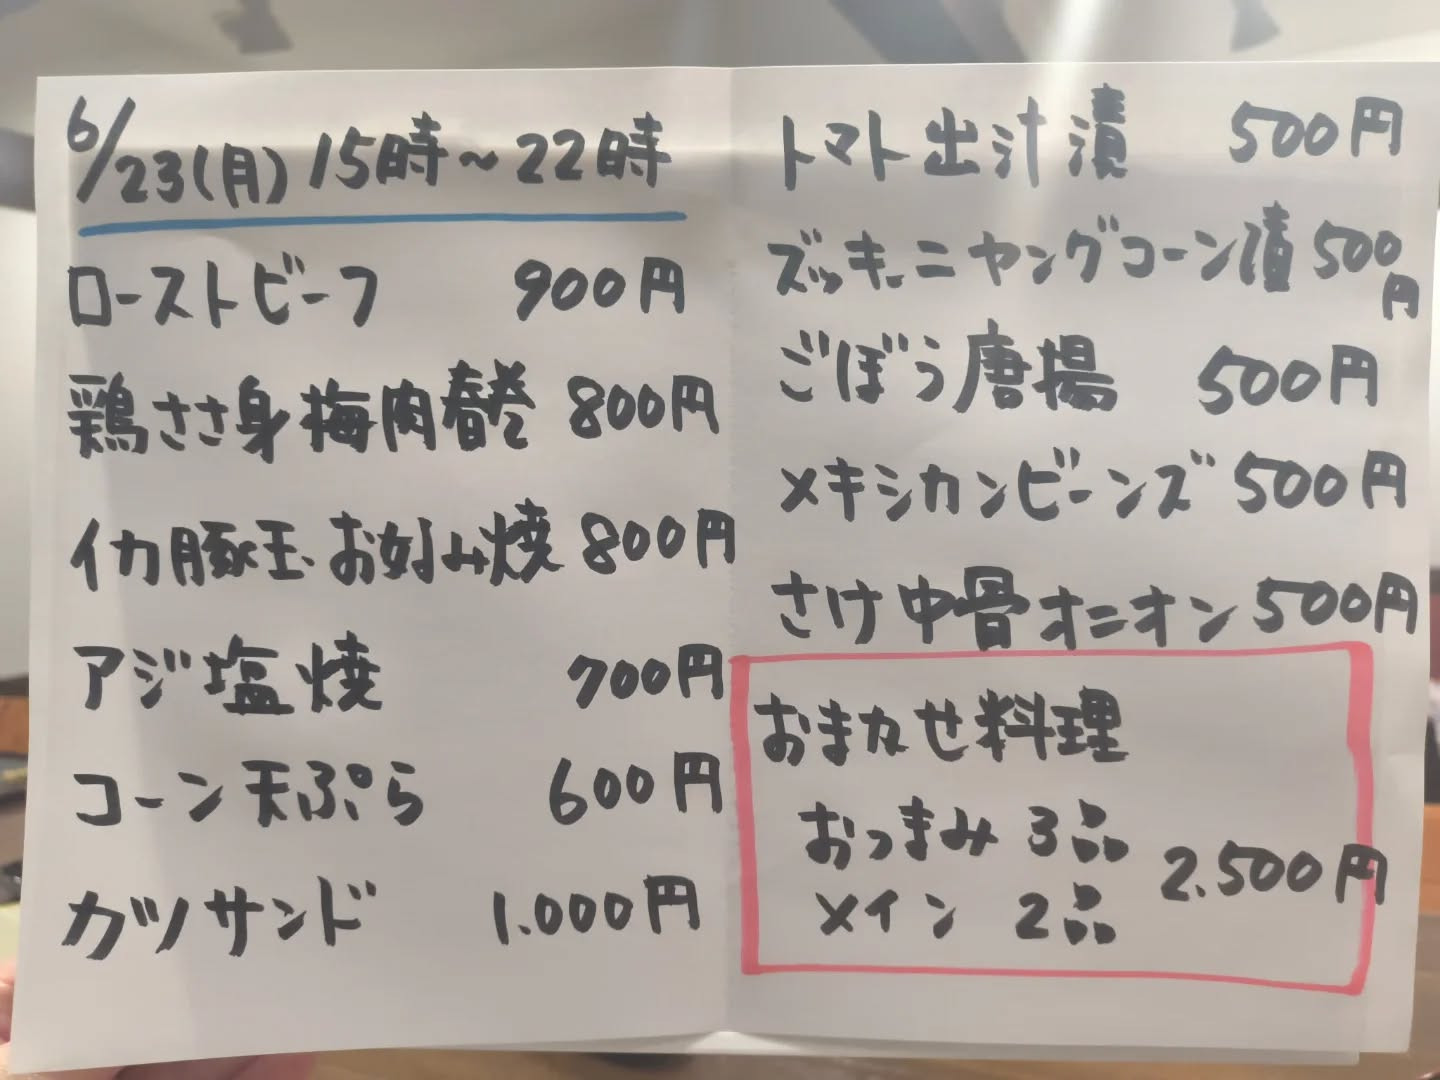 6/23(月) 15時~22時
ローストビーフ 900円
鶏ささ身梅肉春巻 800円
イカ豚玉お好み焼 800円
アジ塩焼 700円
コーン天ぷら 600円
ガツサンド 1.000円
トマト出汁漬 500円
ズッキーニヤングコーン漬 500円
ごぼう唐揚 500円
メキシカンビーンズ 500円
さけ中骨オニオン 500円
おまかせ料理
おつまみ 3品
メイン 2品 2.500円